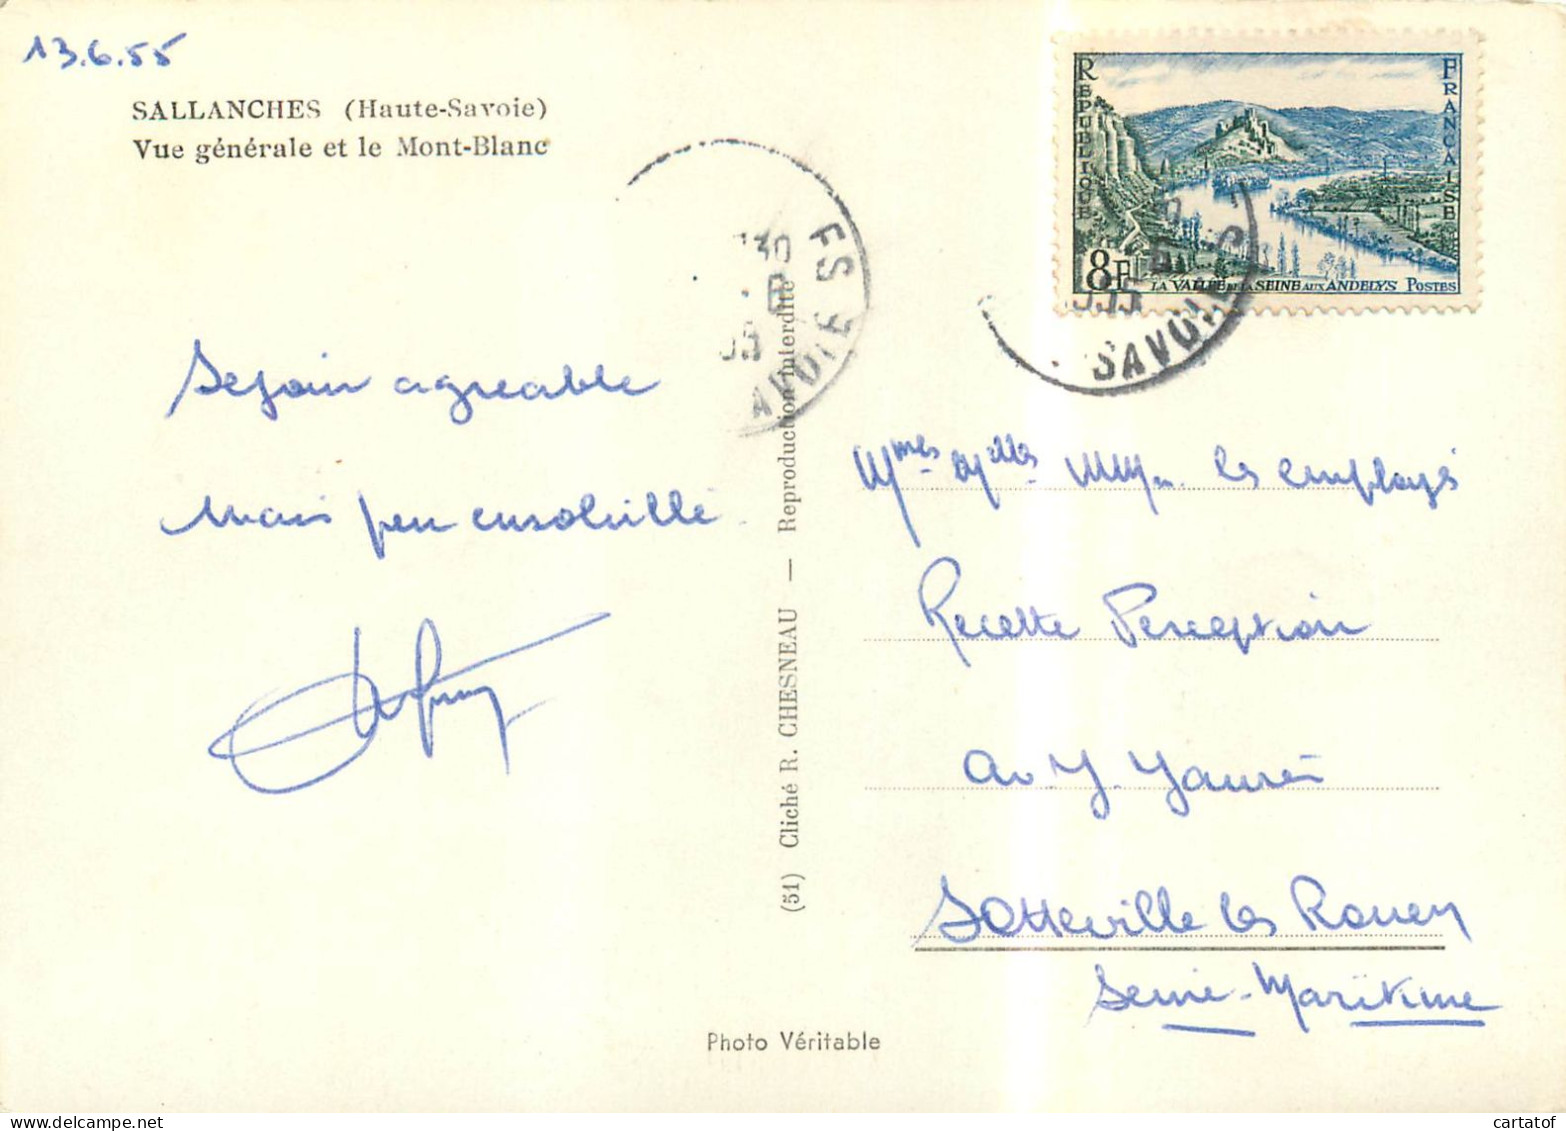 13.6.55
SALLANCHES (Haute-Savoie)
Vue générale et le Mont-Blanc
Sejour agreable
Mais peu ensoleillé
(51) Cliché R. CHESNEAU — Reproduction interdite
Photo Véritable
RÉPUBLIQUE FRANÇAISE
8F
LA VALLÉE DE LA SEINE AUX ANDELYS POSTES
SAVOIE
Mmes Mlles MM. les employés
Recette Perception
Av J. Jaurès
Sotteville les Rouen
Seine-Maritime
cartatof